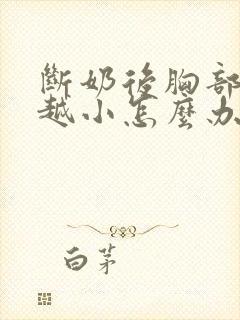 斷奶後胸部
越小怎麼办
白茅